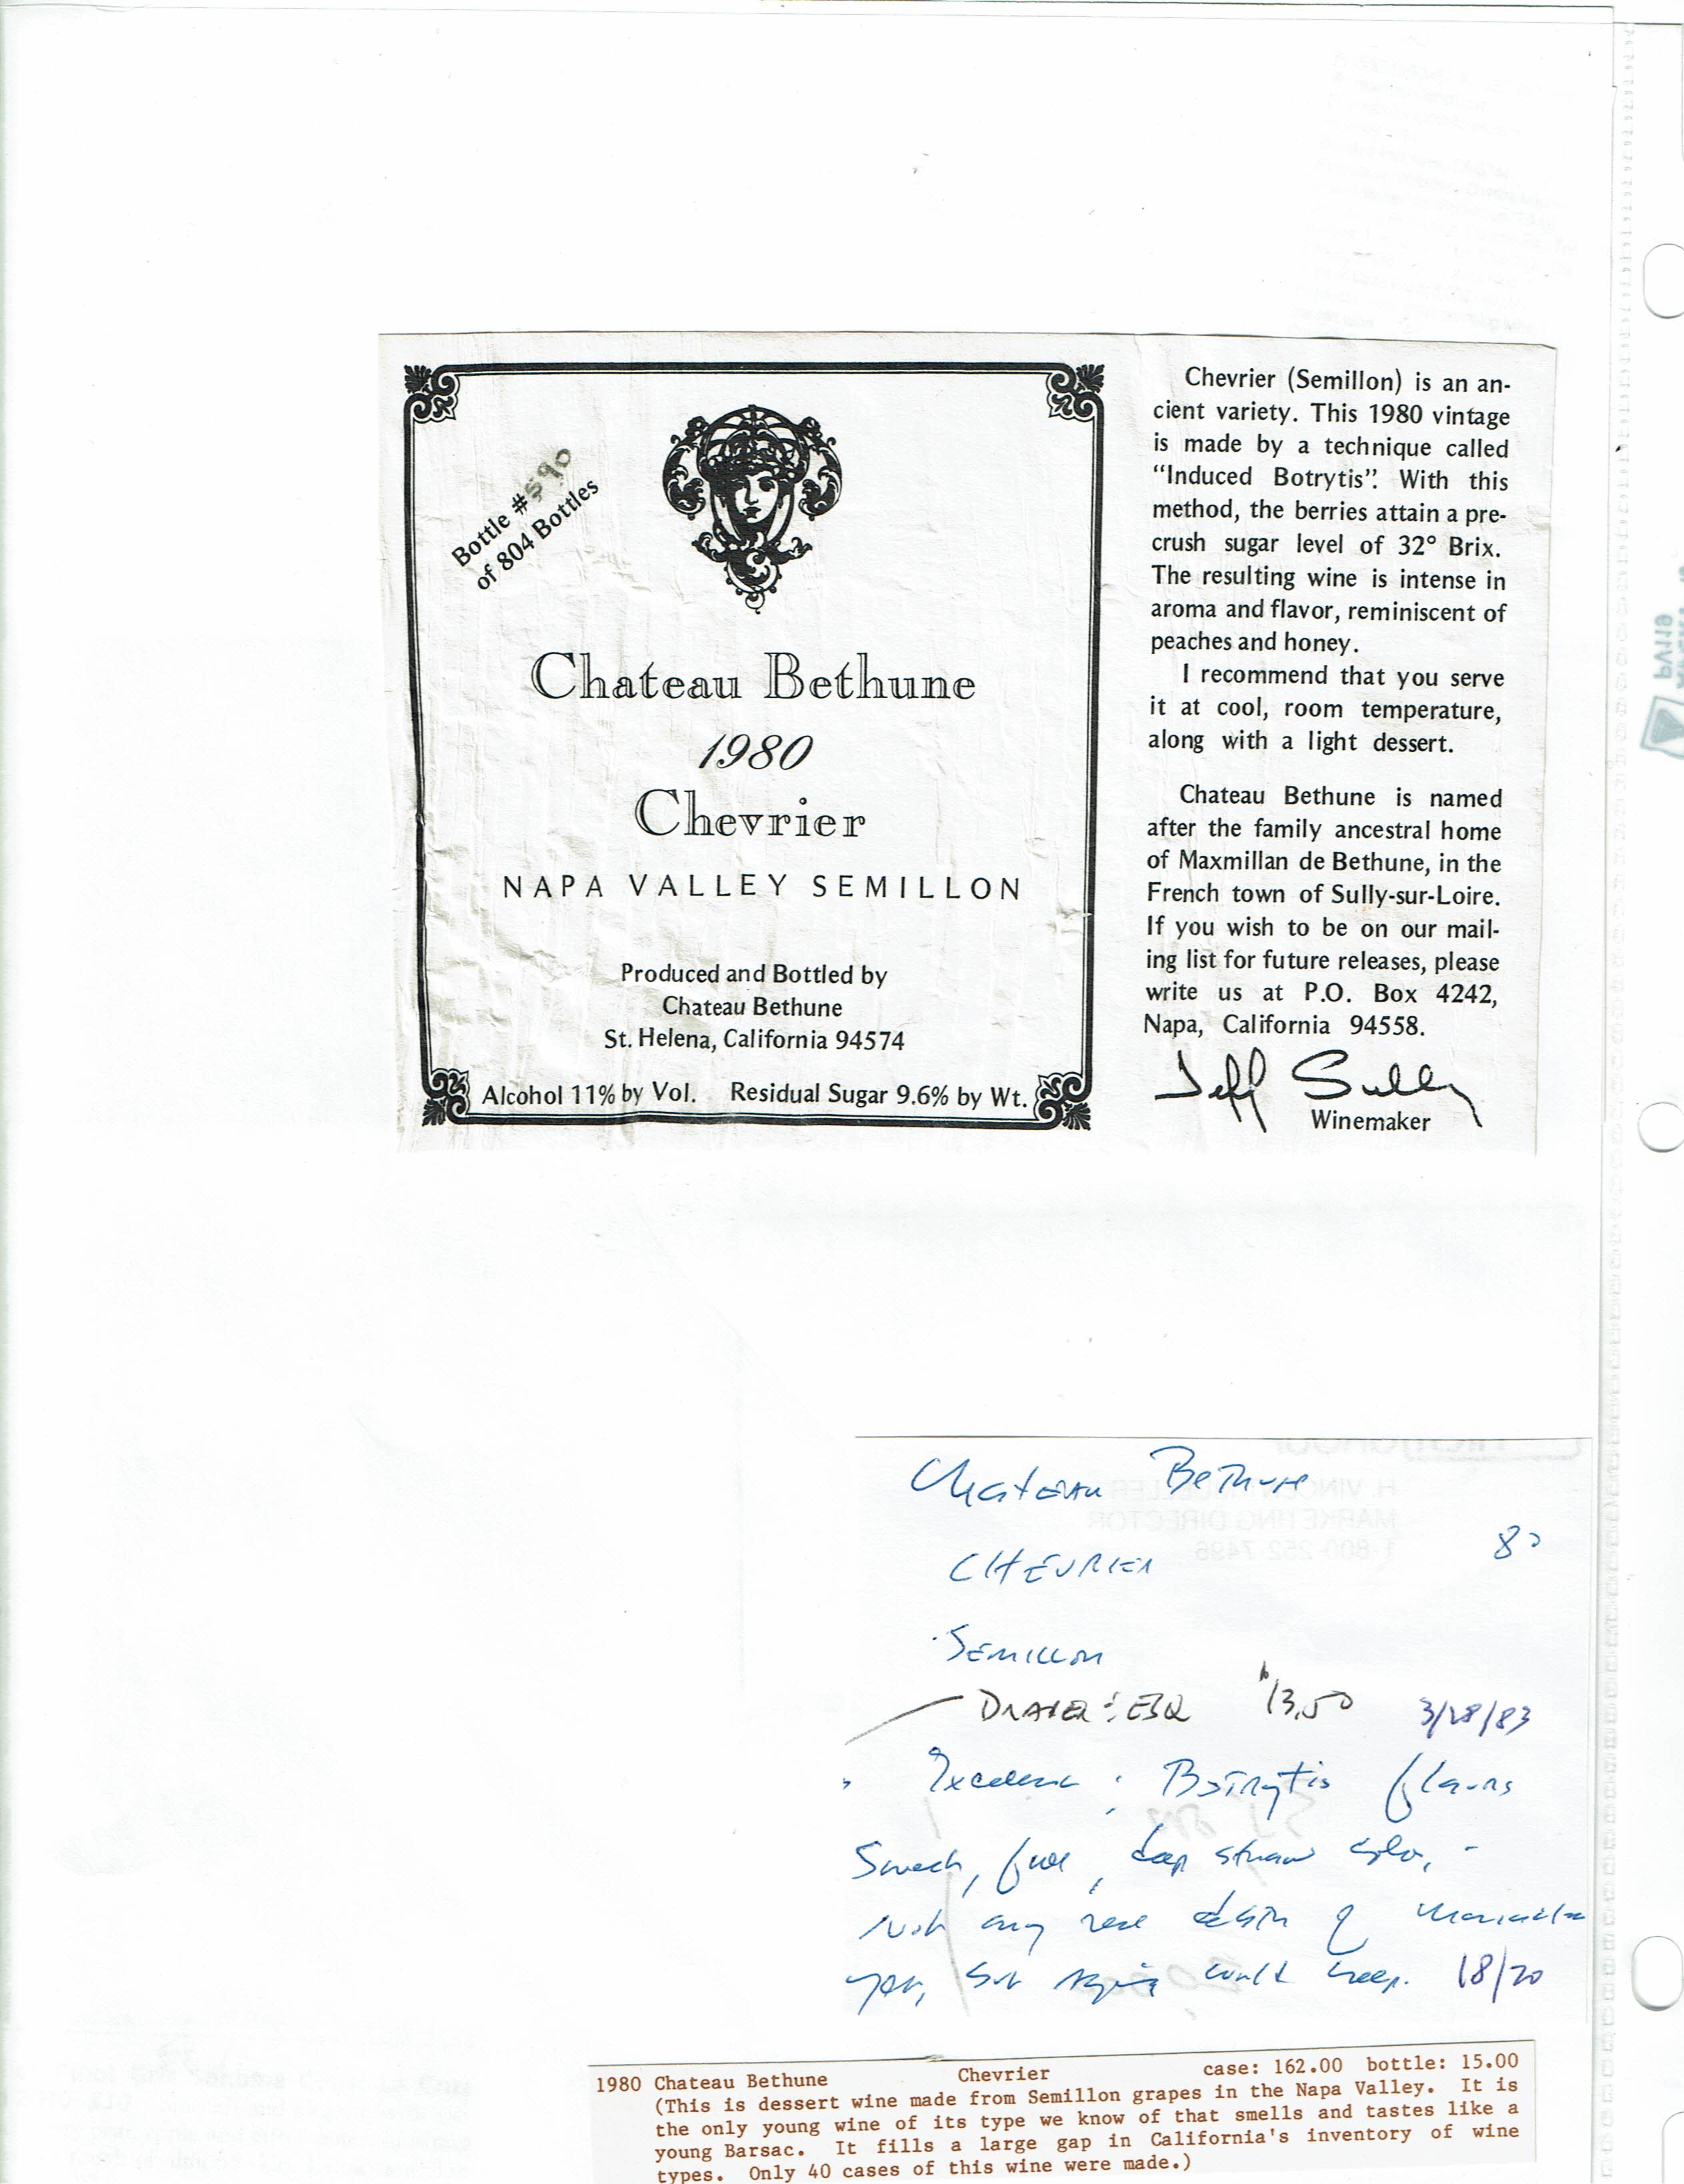 Bottle #590
of 804 Bottles
Chateau Bethune
1980
Chevrier
NAPA VALLEY SEMILLON
Produced and Bottled by
Chateau Bethune
St. Helena, California 94574
Alcohol 11% by Vol. Residual Sugar 9.6% by Wt.
Chevrier (Semillon) is an an-
cient variety. This 1980 vintage
is made by a technique called
“Induced Botrytis”. With this
method, the berries attain a pre-
crush sugar level of 32° Brix.
The resulting wine is intense in
aroma and flavor, reminiscent of
peaches and honey.
I recommend that you serve
it at cool, room temperature,
along with a light dessert.
Chateau Bethune is named
after the family ancestral home
of Maxmillan de Bethune, in the
French town of Sully-sur-Loire.
If you wish to be on our mail-
ing list for future releases, please
write us at P.O. Box 4242,
Napa, California 94558.
Jeff Sully
Winemaker
PV119
H. VINCENT
MARKETING DIRECTOR
1-800-252-7496
Chateau Bethune
80
CHEVRIER
SEMILLON
$13.50 3/28/83
Excellent; Botrytis flavors
Sweet, full, deep straw color, -
not any real depth of
yet, but could keep. 18/20
1980 Chateau Bethune Chevrier case: 162.00 bottle: 15.00
(This is dessert wine made from Semillon grapes in the Napa Valley. It is
the only young wine of its type we know of that smells and tastes like a
young Barsac. It fills a large gap in California's inventory of wine
types. Only 40 cases of this wine were made.)